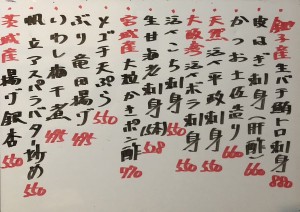 銚子産生バチ鮪トロ刺身 880
皮はぎ刺身(肝酢) 660
かつお土佐造り 660
天然活〆平政刺身 550
大阪湾活〆ボラ刺身 550
活〆こち刺身 550
生甘海老刺身(5本) 528
宮城産大粒かきポン酢 770
とび子天ぷら 550
ぶり竜田揚げ 495
いわし梅干煮 495
帆立アスパラバター炒め 550
茨城産揚げ銀杏 550